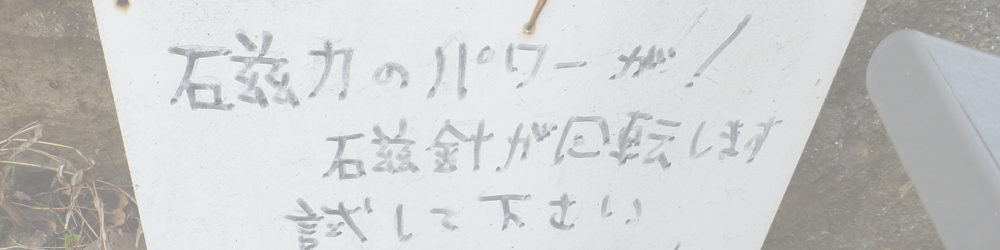 磁力のパワーが!
磁針が回転します
試して下さい